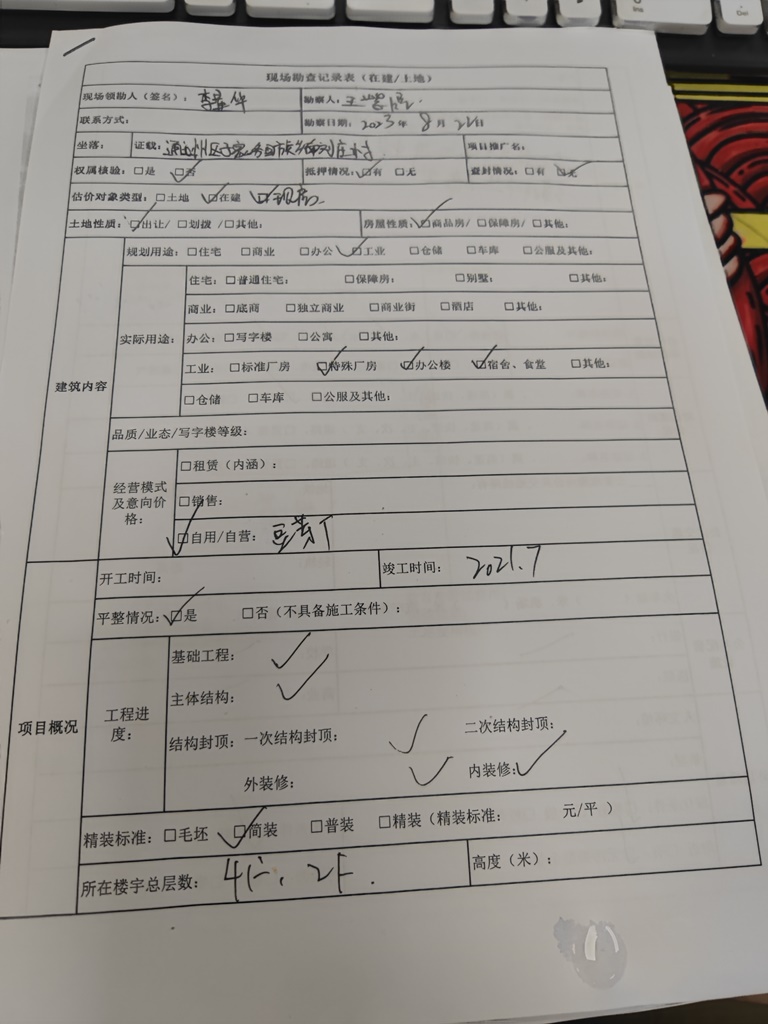 现场勘查记录表（在建/土地）
现场领勘人（签名）： 李 华 勘察人：王
联系方式： 勘察日期：2023年 8月 22日
坐落： 证载：通州区于家务回族乡 刘庄村 项目推广名：
权属核验：☐是 ☑否 抵押情况：☑有 ☐无 查封情况：☐有 ☑无
估价对象类型：☐土地 ☑在建 ☑现房
土地性质：☑出让/☐划拨 /☐其他： 房屋性质：☑商品房/☐保障房/☐其他：
建筑内容
规划用途：☐住宅 ☐商业 ☐办公 ☑工业 ☐仓储 ☐车库 ☐公服及其他：
实际用途：
住宅：☐普通住宅： ☐保障房： ☐别墅： ☐其他：
商业：☐底商 ☐独立商业 ☐商业街 ☐酒店 ☐其他：
办公：☐写字楼 ☐公寓 ☐其他：
工业：☐标准厂房 ☑特殊厂房 ☑办公楼 ☑宿舍、食堂 ☐其他：
☐仓储 ☐车库 ☐公服及其他：
品质/业态/写字楼等级：
经营模式
及意向价
格：
☐租赁（内涵）：
☐销售：
☑自用/自营：豆芽厂
项目概况
开工时间： 竣工时间： 2021.7
平整情况：☑是 ☐否（不具备施工条件）：
工程进
度：
基础工程： ✓
主体结构： ✓
结构封顶：一次结构封顶： ✓ 二次结构封顶：
外装修： ✓ 内装修：✓
精装标准：☐毛坯 ☑简装 ☐普装 ☐精装（精装标准： 元/平 ）
所在楼宇总层数： 4F、2F. 高度（米）：